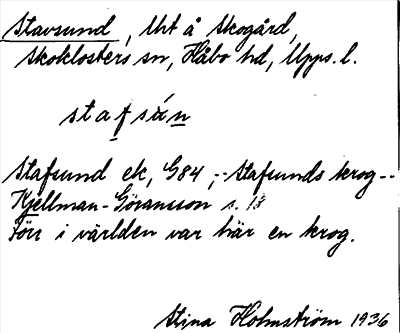 Stavsund, Uht å Skogård,
Skoklosters sn, Håbo hd, Upps. l.
stafsún
Stafsund ek, G84, -- Stafsunds krog --
Kjellman-Göransson s. 18
Förr i världen var här en krog.
Stina Holmström 1936